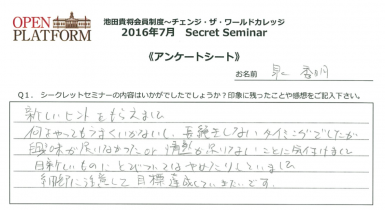 OPEN
PLATFORM
池田貴将会員制度～チェンジ・ザ・ワールドカレッジ
2016年7月 Secret Seminar
《アンケートシート》
お名前
Q1. シークレットセミナーの内容はいかがでしたでしょうか？印象に残ったことや感想をご記入下さい。
新しいヒントをもらえました
何をやってもうまくいかないし、長続きしないタイミングでしたが
興味が尽いなかった or 情熱が尽いないことに気付けました
新しいものにとびついてはやめたりしていました
細部に注意して目標達成していきたいです。